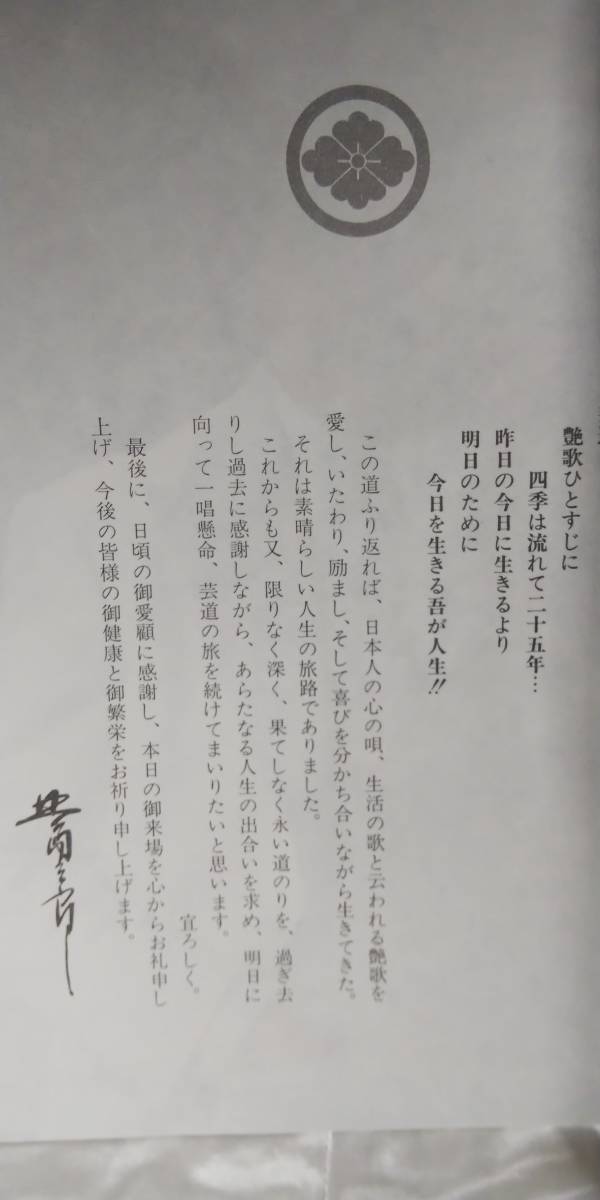 艶歌ひとすじに
四季は流れて二十五年…
昨日の今日に生きるより
明日のために
今日を生きる吾が人生!!
この道ふり返れば、日本人の心の唄、生活の歌と云われる艶歌を
愛し、いたわり、励まし、そして喜びを分かち合いながら生きてきた。
それは素晴らしい人生の旅路でありました。
これからも又、限りなく深く、果てしなく永い道のりを、過ぎ去
りし過去に感謝しながら、あらたなる人生の出合いを求め、明日に
向って一唱懸命、芸道の旅を続けてまいりたいと思います。
宜ろしく。
最後に、日頃の御愛顧に感謝し、本日の御来場を心からお礼申し
上げ、今後の皆様の御健康と御繁栄をお祈り申し上げます。